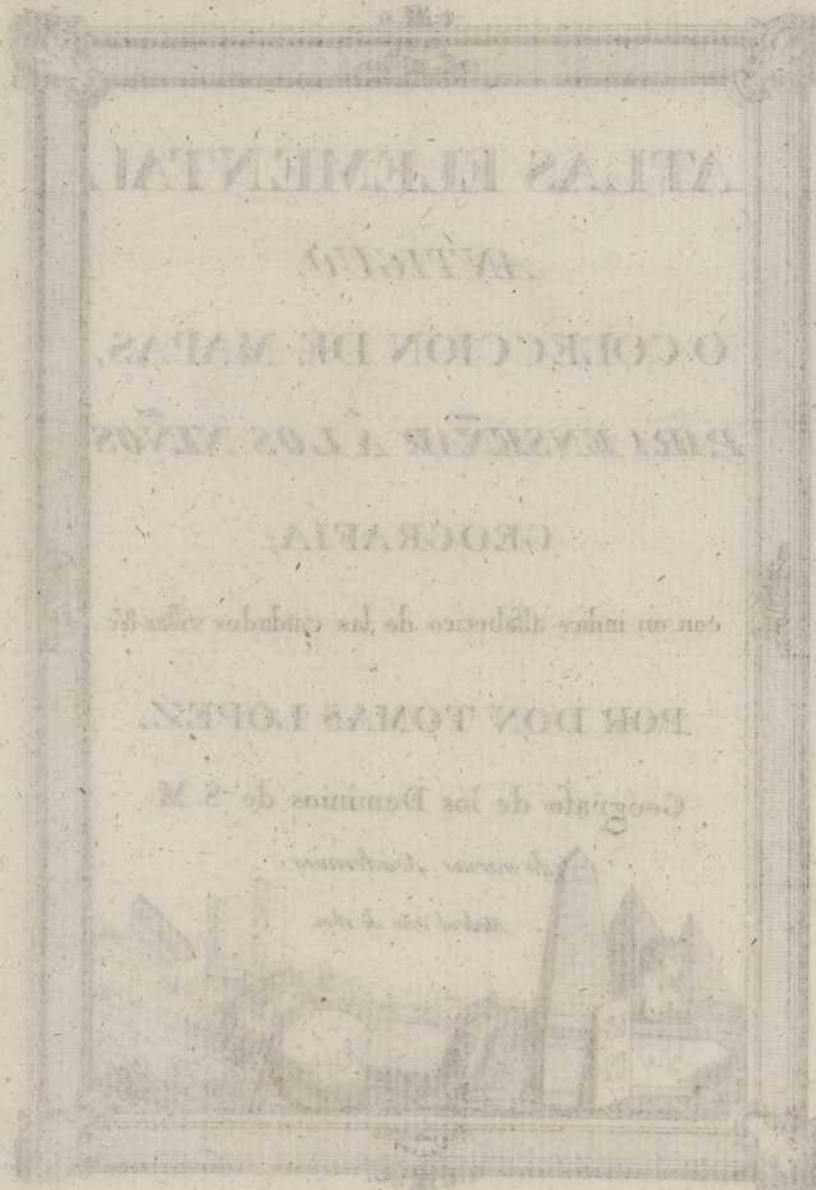 ATLAS ELEMENTAL
ANTIGUO,
O COLECCION DE MAPAS,
PARA ENSEÑAR Á LOS NIÑOS
GEOGRAFIA;
con un indice alfabetico de las ciudades villas &c
POR DON TOMAS LOPEZ,
Geógrafo de los Dominios de S. M.
de varias Academias.
Madrid año de